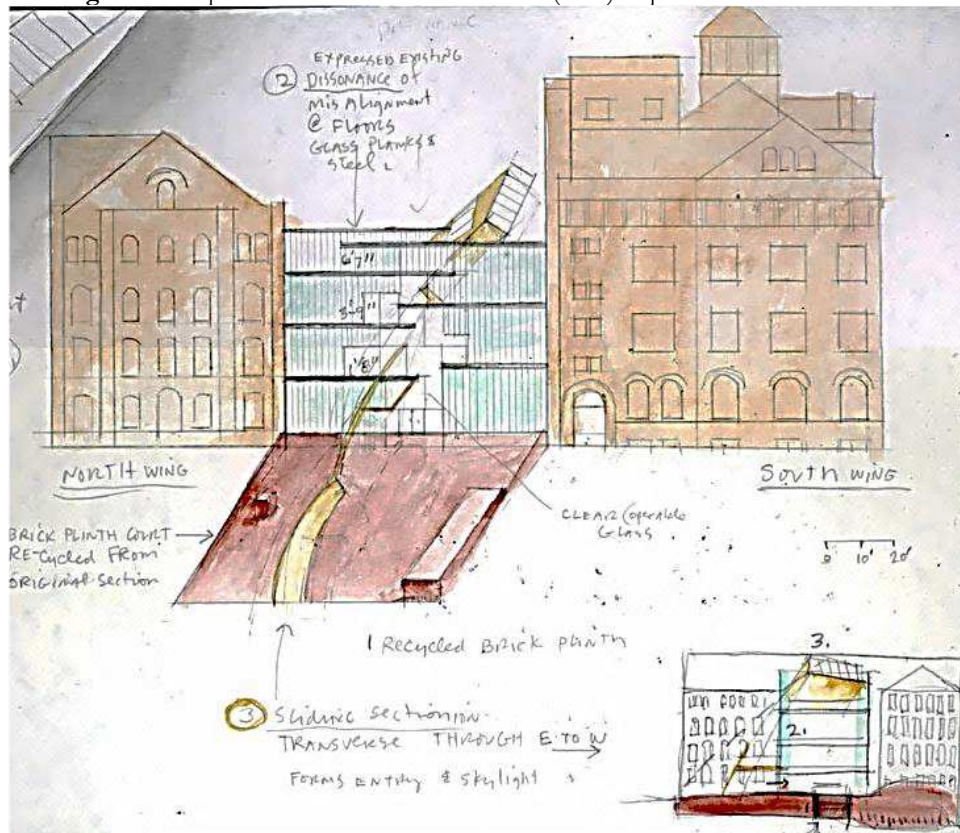 EXPRESSED EXISTING
② DISSONANCE of
MisAlignment
@ FLOORS
GLASS PLANKS &
Steel
6'7"
3'-9"
1/8"
NORTH WING
SOUTH WING
BRICK PLINTH COURT
RE-Cycled FROM
ORIGINAL Section
CLEAR (operable
GLASS
0 10' 20'
1 Recycled BRICK PLINTH
③ SLIDING SECTION
TRANSVERSE THROUGH E TO W
FORMS ENTRY & SKYLIGHT
3.
2.